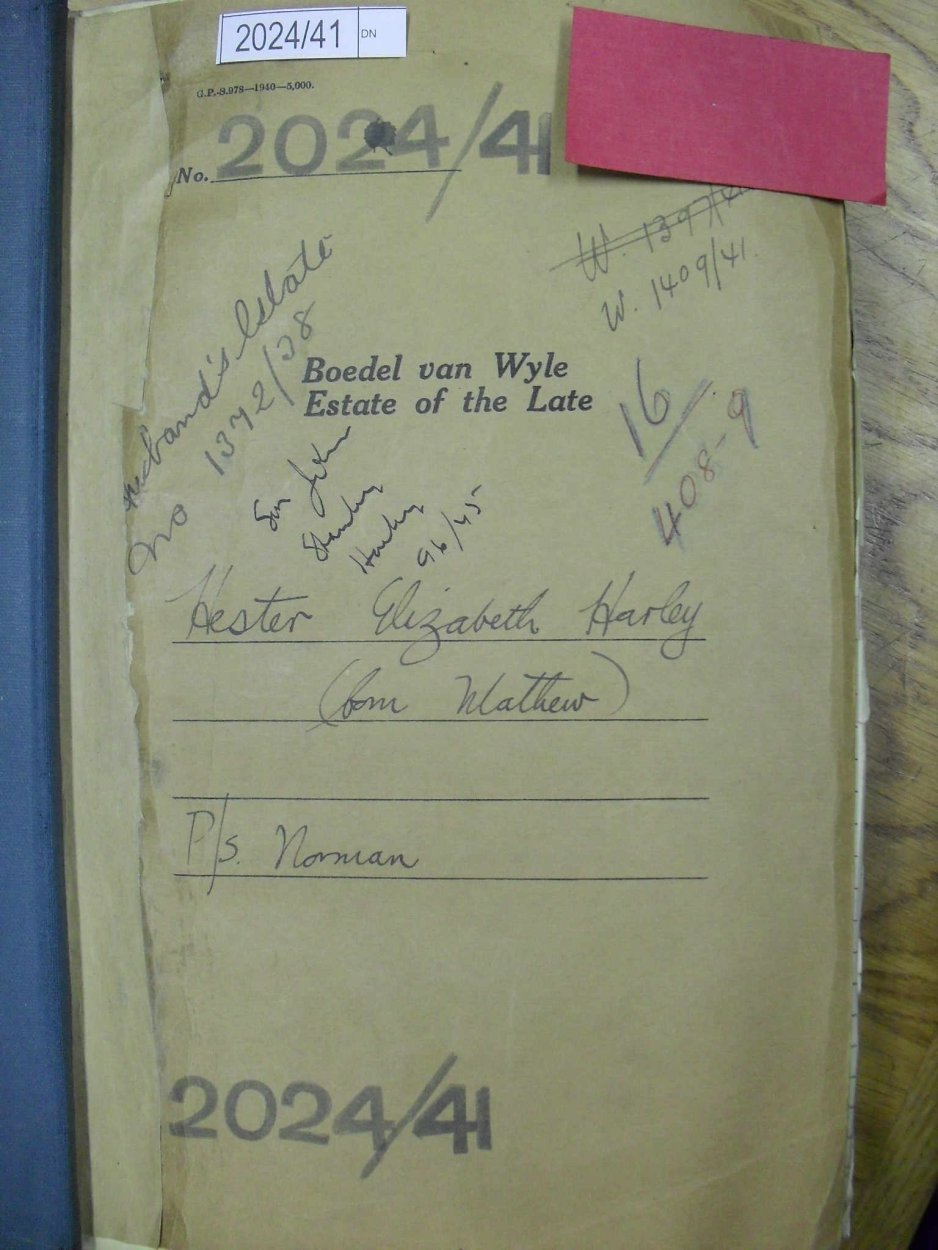 2024/41 DN
G.P.-S.978—1940—5,000.
No. 2024/41
W. 1397/41
W. 1409/41.
Husband's Estate
No 1372/38
Boedel van Wyle
Estate of the Late
16
408-9
Son John
Stanley
Harley
96/45
Hester Elizabeth Harley
(born Mathew)
P/s. Norman
2024/41